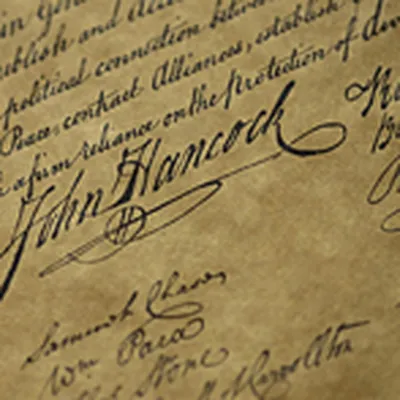 ublish and
political connection between
Peace, contract Alliances, establish
a firm reliance on the Protection of
John Hancock
Samuel Chase
Wm Paca
Stone
Carrollton